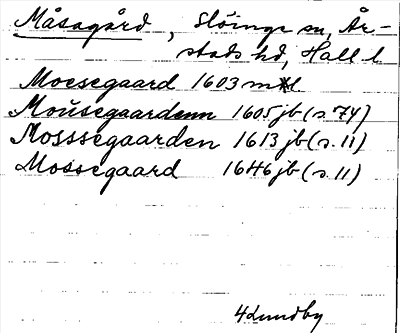 Måsagård, Slöinge sn, År-
stads hd, Hall l
Moesegaard 1603 mtl
Moŭsegaardenn 1605 jb (s. 74)
Mosssegaarden 1613 jb (s. 11)
Mossegaard 1646 jb (s. 11)
4 Lundby